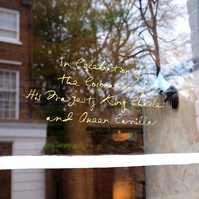 In Celebration of
the Coron
His Majesty King Charles III
and Queen Camilla